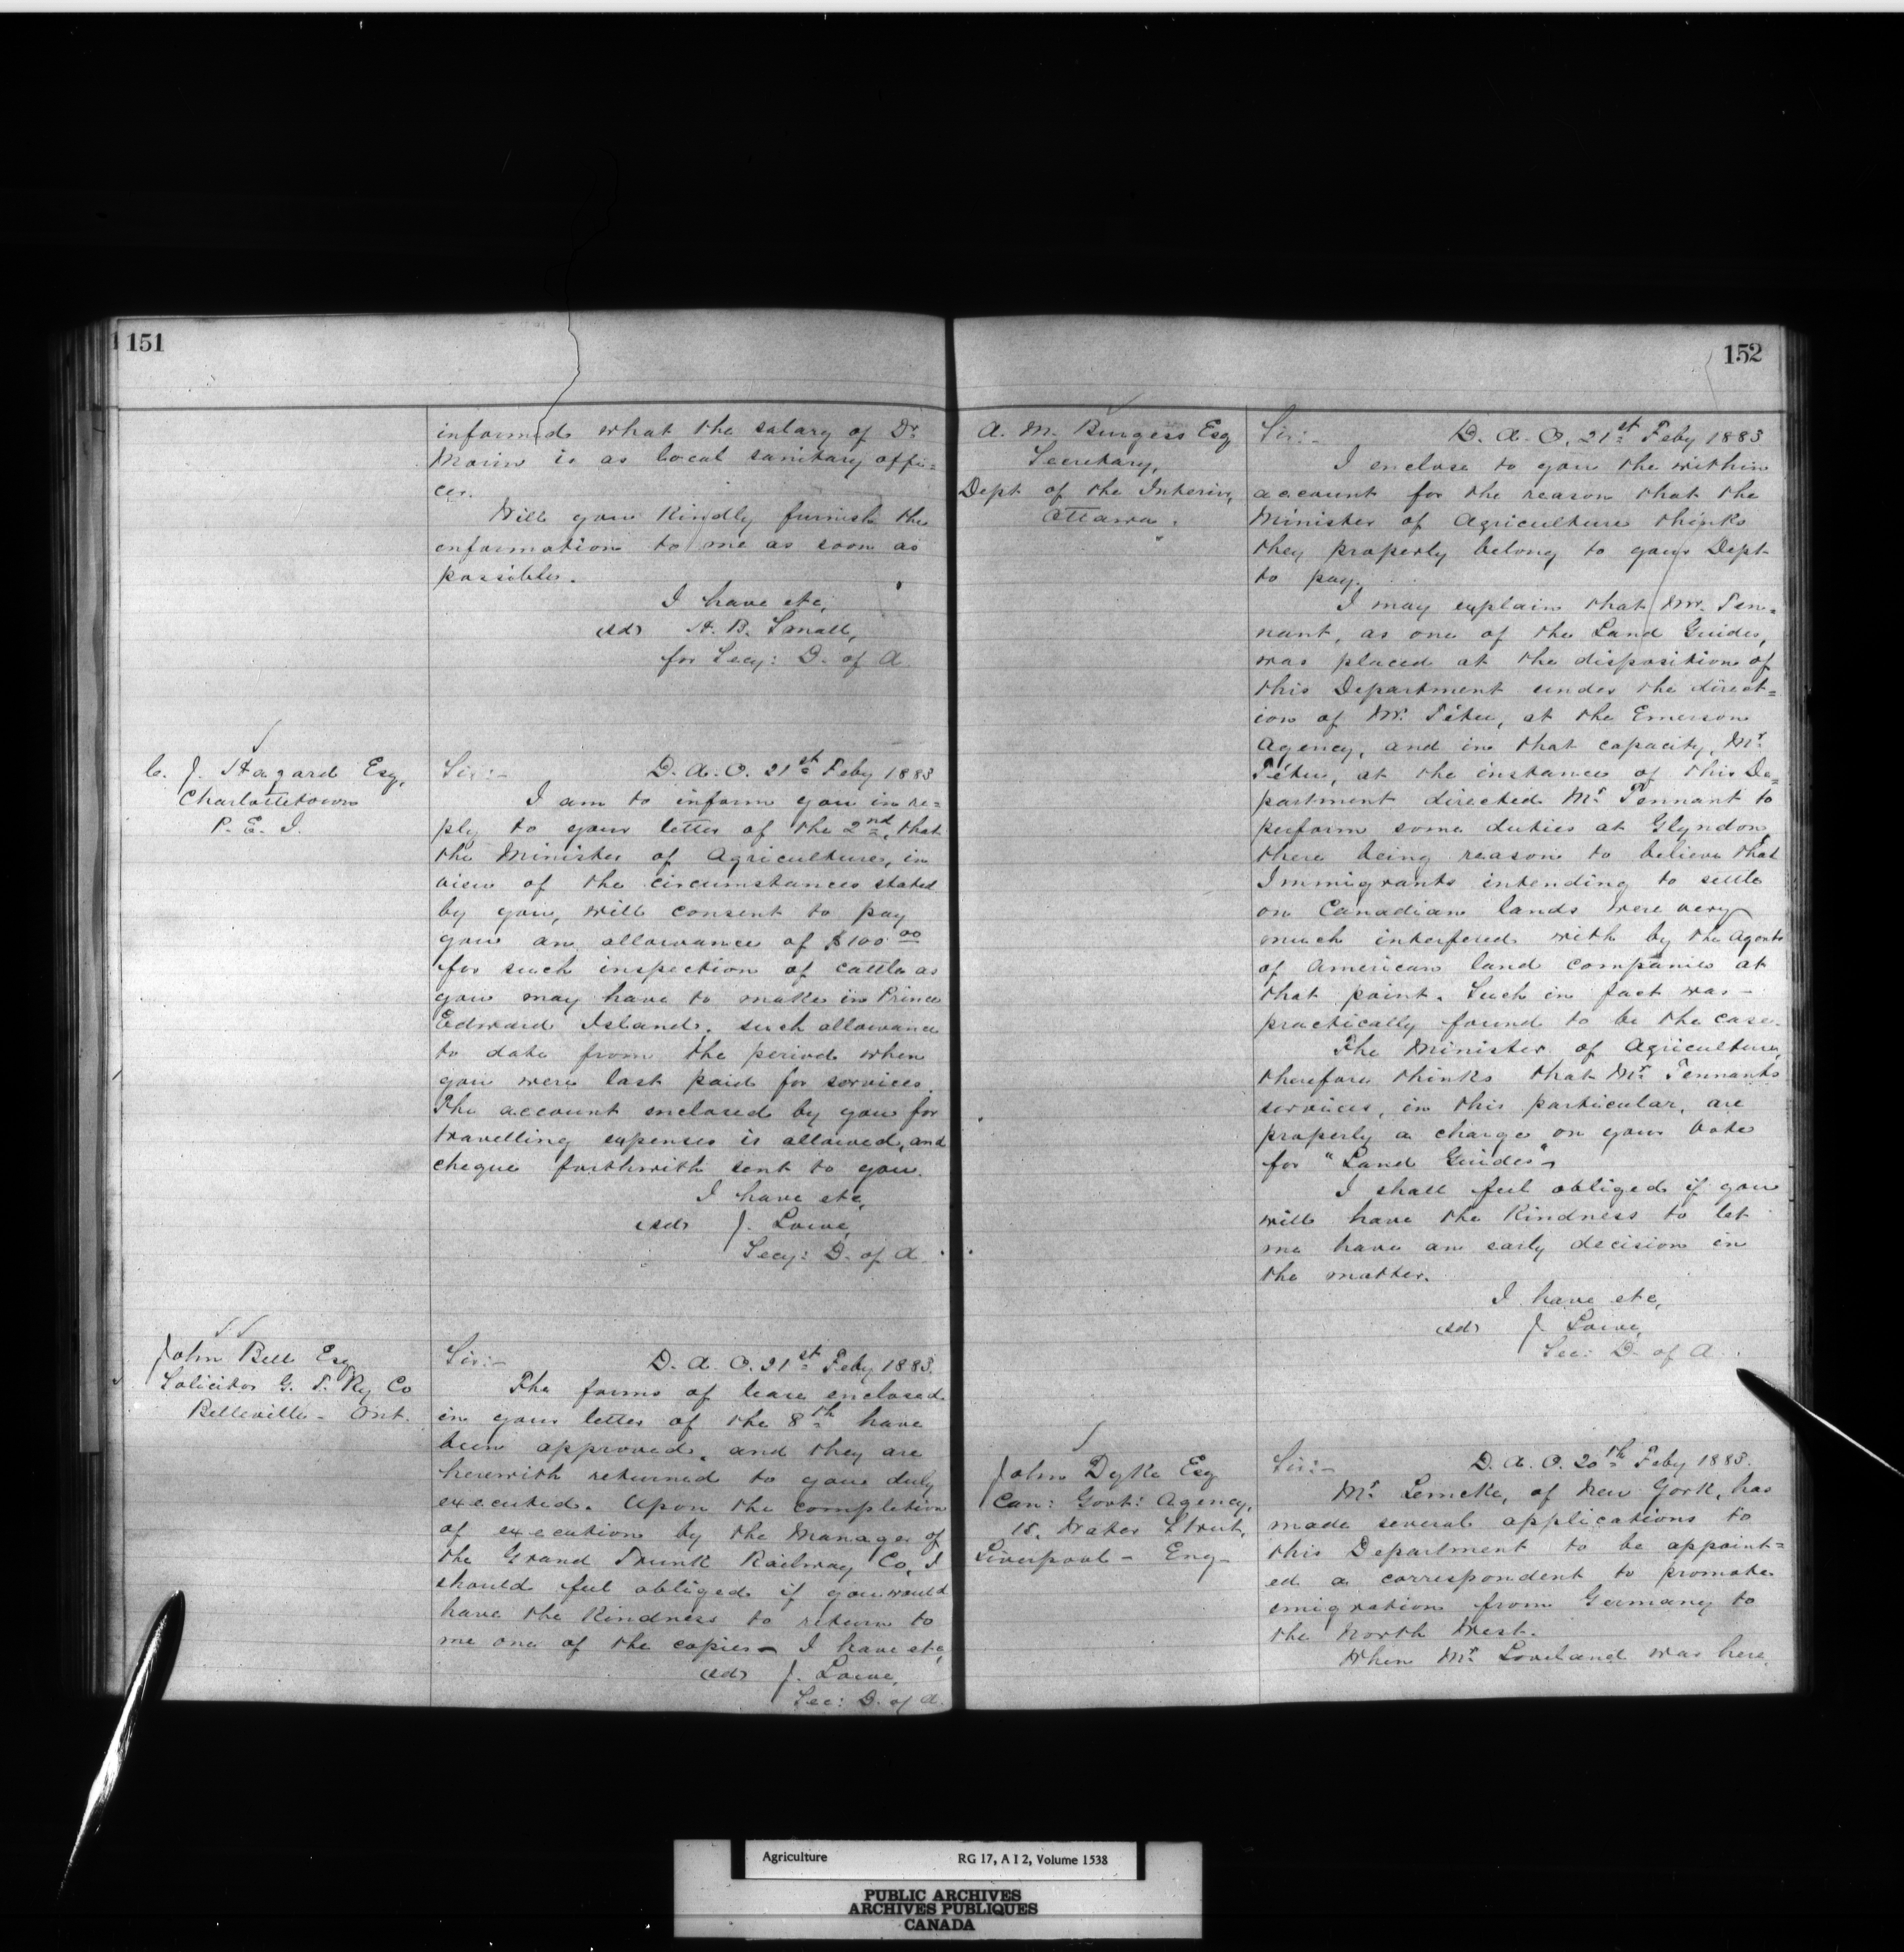 151
informed what the salary of Dr.
Morin is as local sanitary offi=
cer.
Will you kindly furnish the
information to me as soon as
possible.
I have etc,
(sd) H. B. Small,
for Secy: D. of A.
C. J. Hazard Esq,
Charlottetown
P. E. I.
Sir:- D. A. O. 21st Feby 1883
I am to inform you in re=
ply to your letter of the 2nd, that
the Minister of Agriculture, in
view of the circumstances stated
by you, will consent to pay
you an allowance of $100.00
for such inspection of cattle as
you may have to make in Prince
Edward Island. such allowance
to date from the period when
you were last paid for services.
The account enclosed by you for
travelling expenses is allowed, and
cheque forthwith sent to you.
I have etc,
(sd) J. Lowe,
Secy: D. of A.
John Bell Esq
Solicitor G. T. Ry Co
Belleville - Ont.
Sir:- D. A. O. 21st Feby 1883.
The forms of lease enclosed
in your letter of the 8th have
been approved, and they are
herewith returned to you duly
executed. Upon the completion
of execution by the Manager of
the Grand Trunk Railway Co, I
should feel obliged if you would
have the kindness to return to
me one of the copies - I have etc,
(sd) J. Lowe,
Sec: D. of A.
152
A. M. Burgess Esq
Secretary,
Dept of the Interior,
Ottawa.
Sir:- D. A. O. 21st Feby 1883
I enclose to you the within
account for the reason that the
Minister of Agriculture thinks
they properly belong to your Dept
to pay.
I may explain that Mr. Ten=
nant, as one of the Land Guides,
was placed at the disposition of
this Department under the direct=
ion of Mr. Têtu, at the Emerson
Agency, and in that capacity, Mr.
Têtu, at the instance of this De=
partment directed Mr. Tennant to
perform some duties at Glyndon,
there being reason to believe that
Immigrants intending to settle
on Canadian lands were very
much interfered with by the Agents
of American land companies at
that point. Such in fact was -
practically found to be the case.
The Minister of Agriculture,
therefore thinks that Mr. Tennants
services, in this particular, are
properly a charge on your Vote
for "Land Guides" -
I shall feel obliged if you
will have the kindness to let
me have an early decision in
the matter.
I have etc,
(sd) J. Lowe,
Sec: D. of A.
John Dyke Esq
Can: Govt: Agency,
15. Water Street,
Liverpool - Eng -
Sir:- D. A. O. 20th Feby 1883.
Mr. Lemcke, of New York, has
made several applications to
this Department to be appoint=
ed a correspondent to promote
emigration from Germany to
the North West.
When Mr. Loveland was here,
Agriculture RG 17, A I 2, Volume 1538
PUBLIC ARCHIVES
ARCHIVES PUBLIQUES
CANADA